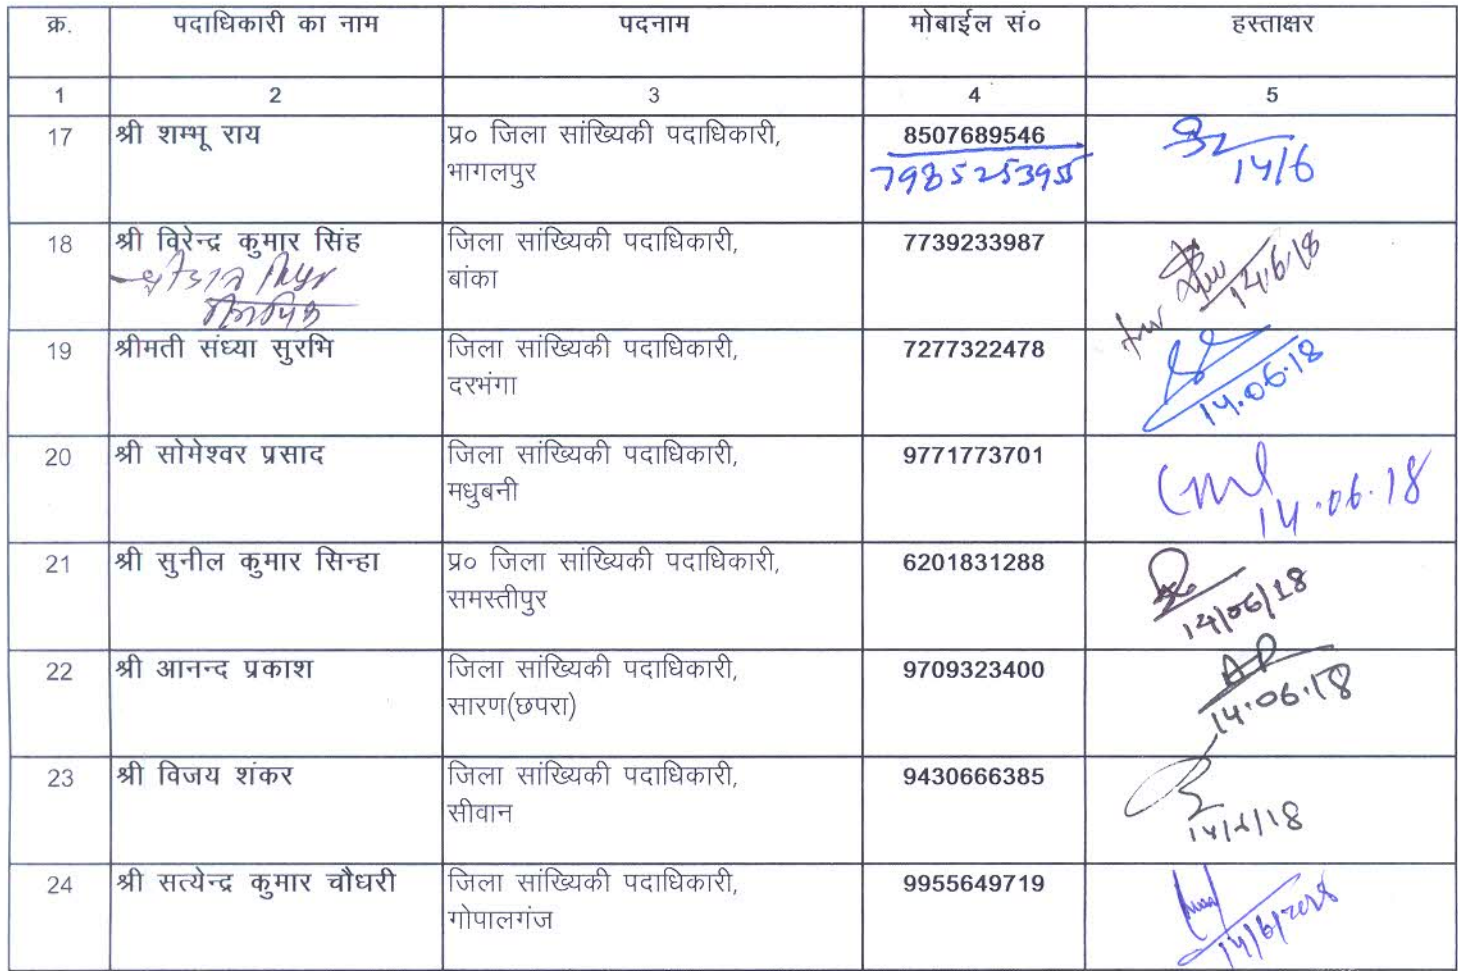 क्र. पदाधिकारी का नाम पदनाम मोबाईल सं० हस्ताक्षर
1 2 3 4 5
17 श्री शम्भू राय प्र० जिला सांख्यिकी पदाधिकारी, 8507689546
भागलपुर 7985253955 14/6
18 श्री विरेन्द्र कुमार सिंह जिला सांख्यिकी पदाधिकारी, 7739233987
बांका 14.6.18
19 श्रीमती संध्या सुरभि जिला सांख्यिकी पदाधिकारी, 7277322478
दरभंगा 14.06.18
20 श्री सोमेश्वर प्रसाद जिला सांख्यिकी पदाधिकारी, 9771773701
मधुबनी 14.06.18
21 श्री सुनील कुमार सिन्हा प्र० जिला सांख्यिकी पदाधिकारी, 6201831288
समस्तीपुर 14/06/18
22 श्री आनन्द प्रकाश जिला सांख्यिकी पदाधिकारी, 9709323400 AP
सारण(छपरा) 14.06.18
23 श्री विजय शंकर जिला सांख्यिकी पदाधिकारी, 9430666385
सीवान 14/6/18
24 श्री सत्येन्द्र कुमार चौधरी जिला सांख्यिकी पदाधिकारी, 9955649719
गोपालगंज 14/6/2018